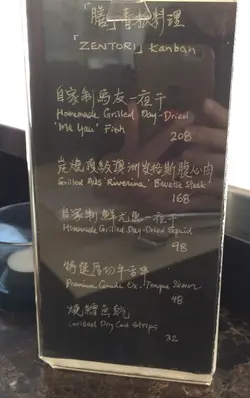 「膳」看板料理
「ZENTORI」Kanban
自家制馬友一夜干
Homemade Grilled Day-Dried
'Ma Yau' Fish
208
炭燒頂級澳洲安格斯腹心肉
Grilled Aus Riverina' Bavette Steak
168
自家制鮮尤魚一夜干
Homemade Grilled Day-Dried Squid
98
特選厚切牛舌串
Premium Grade Ox-Tongue Skewer
48
燒鱈魚乾
Grilled Dry Cod Strips
32